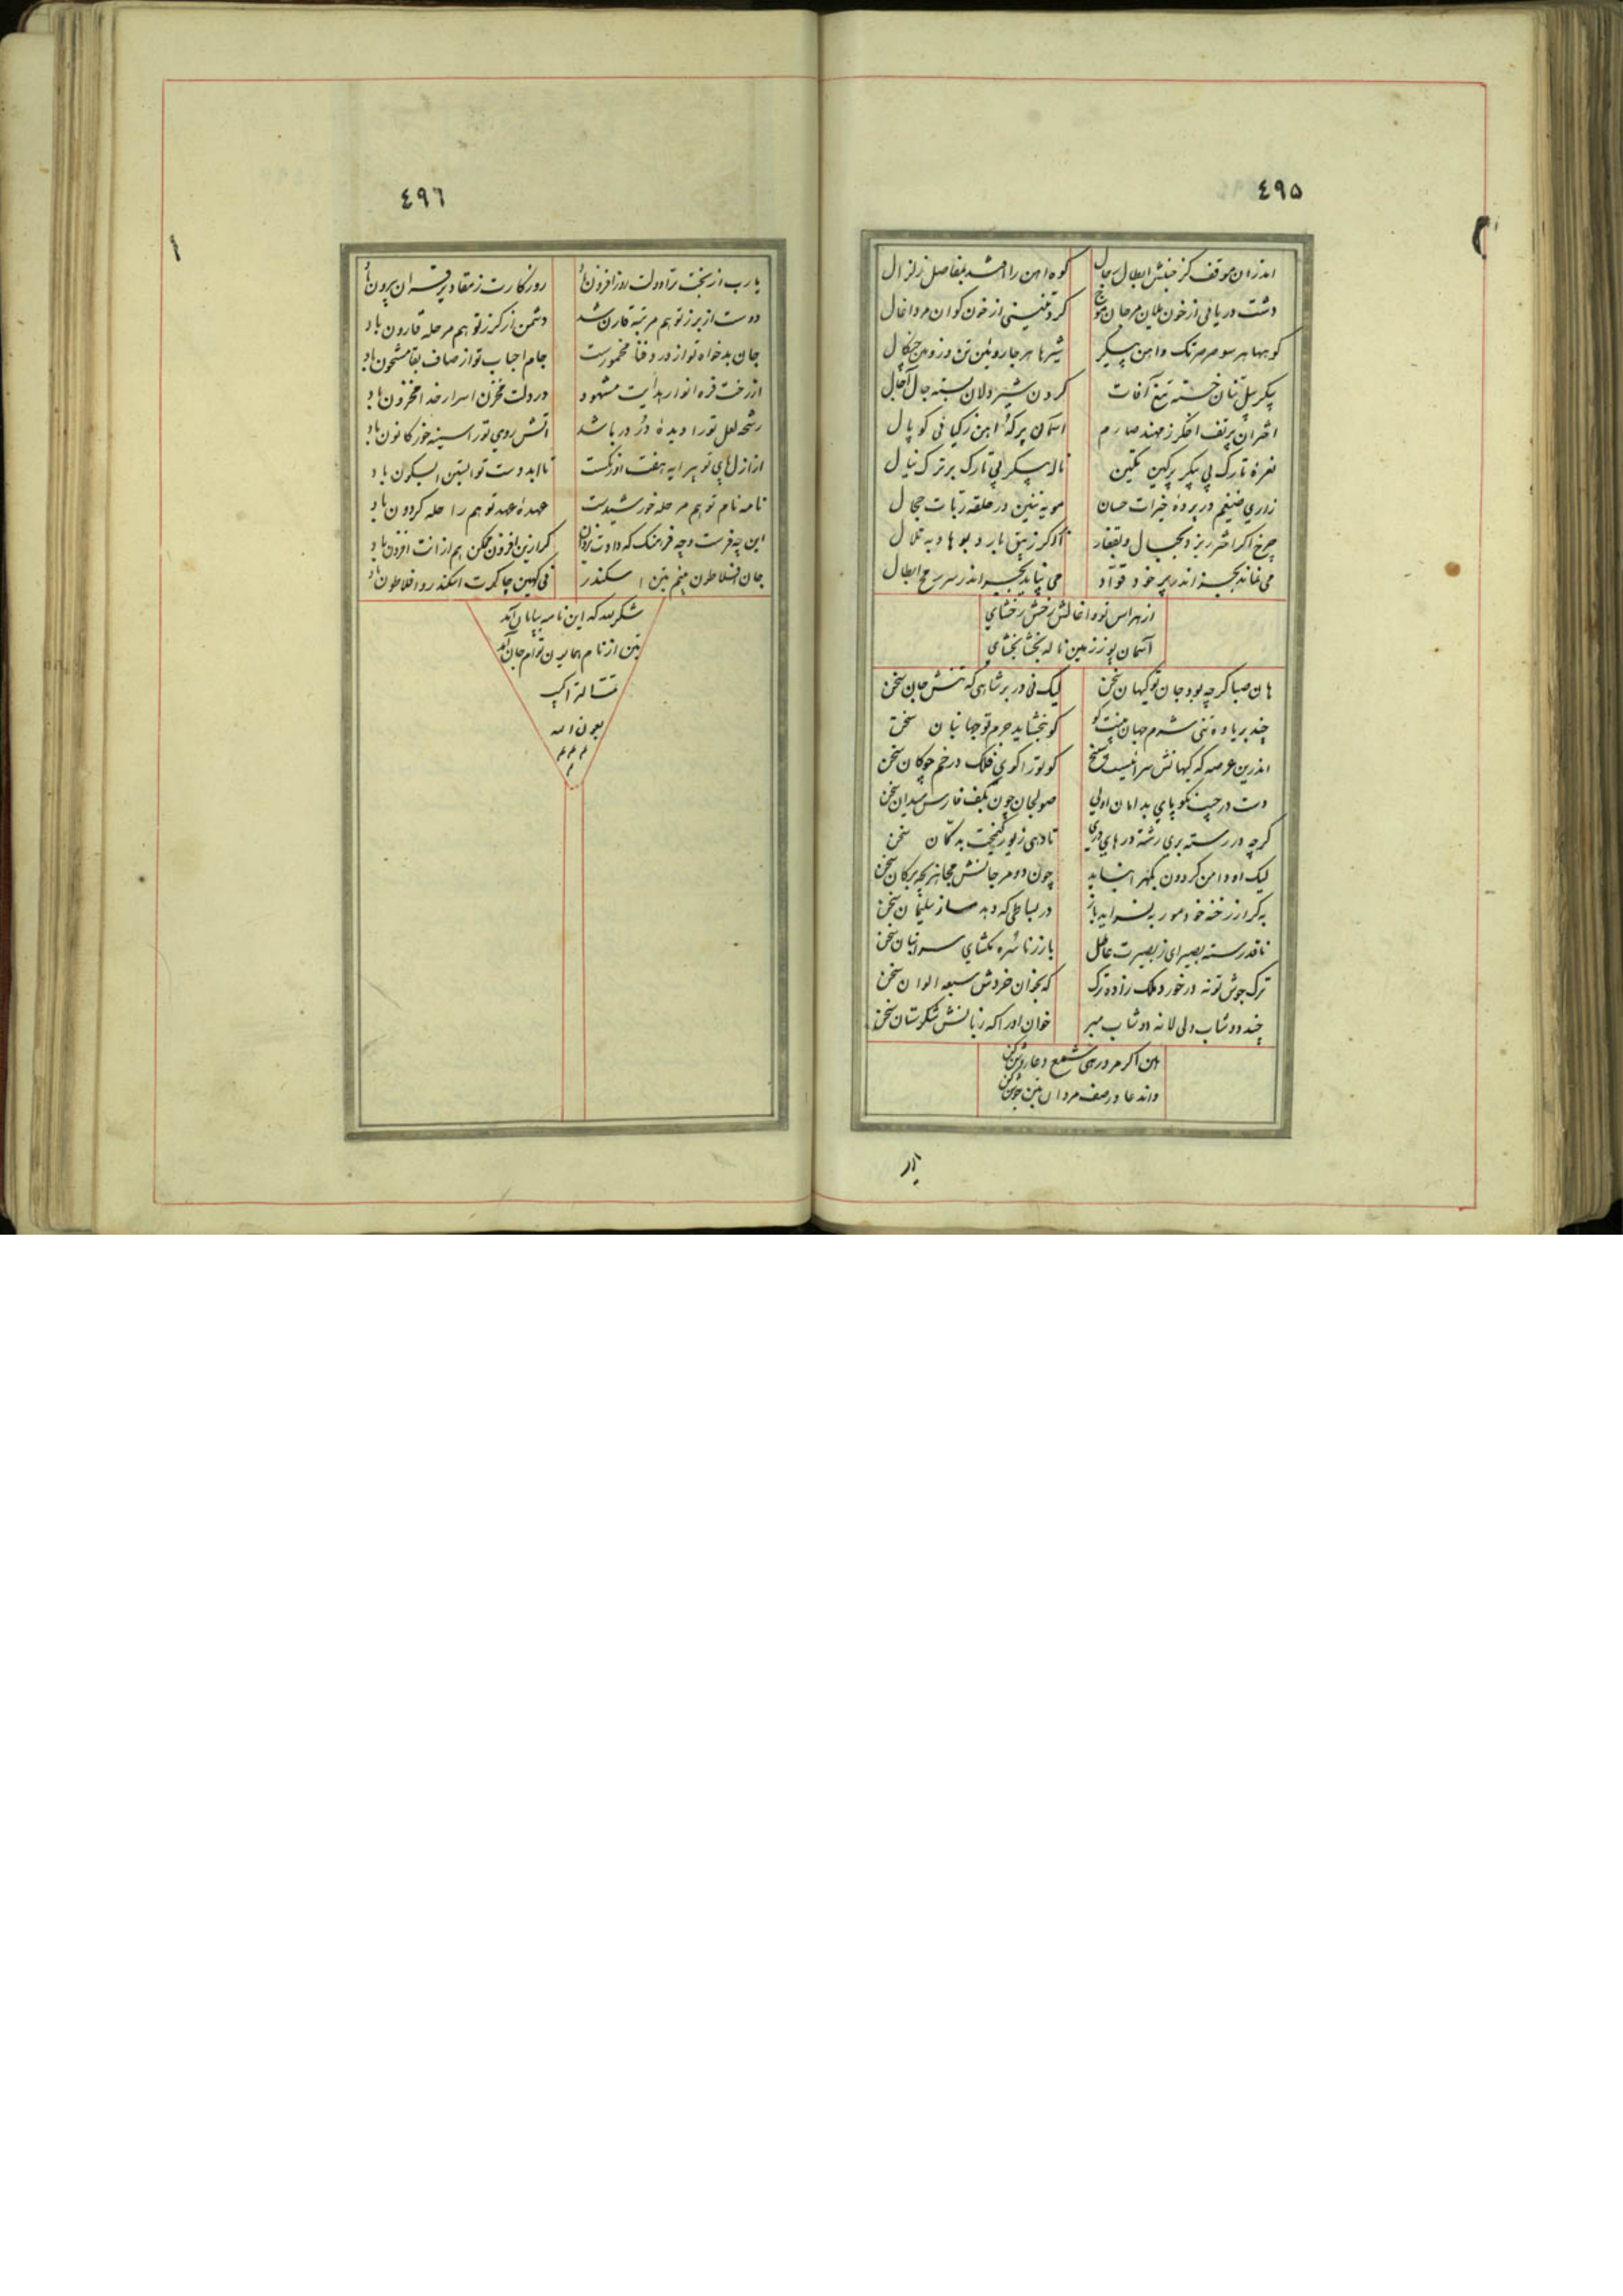 ٤٩٥
اندران موقف کز جنبش ابطال رجال
کوه آهن را شد بمفاصل زلزال
دشت دریائی از خون یلان مرجان موج
کرد از خون کوان مرد اغال
کوهها هر سو صرصر تک و آهن پیکر
شیرها هر جا روئین تن و زوبین چنکال
پیکر پیل تنان خسته تیغ آفات
کردن شیر دلان بسته حبال آجال
اختران پر تف اخکر ز مهند صارم
آسمان پر که آهن ز کیانی کوپال
نعره تارک بی پیکر پر کین تکین
ناله پیکر بی تارک بر ترک نیال
زاری ضیغم در پرده خیرات حسان
مویه تنین در حلقه ربات حجال
چرخ اکر اختر ریزد بجبال و بقفار
ار کر زیبق بارد بوهاد و به تلال
می نماند بجز اندر بر خود قواد
می نپاید بجز اندر سر رمح ابطال
از هراس تو و اغالش رخش رخشای
آسمان بر ز زمین ناله بخشا بخشای
هان صبا کر چه بود جان تو کیهان سخن
لیک نی در بر شاهی که تنش جان سخن
چند بر یاوه تنی شرم جهان بینت کو
کو نبخشاید جرم تو جهانبان سخن
اندرین عرصه که کیهانش سرائیست
کو تورا کوی فلک در خم چوکان سخن
دست در جیب نکو پای بدامان اولی
صولجان چون بکف فارس میدان سخن
کرچه در رسته بری رشته درهای دری
تا دهی زیور کنجت بدکان سخن
لیک او دامن کردون بکهر انباید
چون دو مرجانش بر کان سخن
به کر از رخنه خود مور به نسراید باز
در بساطی که دهد ساز سلیمان سخن
ناقد رسته بصیر ای ز بصیرت عاطل
بار ز ناسره نکشای سر انبان سخن
ترک جوش تو نه در خورد ملک زاده ترک
که بخوان خردش سبعه الوان سخن
چند دوشاب دلی لانه دوشاب مبر
خوان او را که زبانش شکرستان سخن
هان اکر مرد رهی شمع دعا روشن کن
واندعا در صف مردان متین جوشن کن
یار
٤٩٦
یا رب از بخت ترا دولت روز افزون باد
روزکارت ز مقادیر قران بیرون باد
دوست از برز تو هم مرتبه قارن شد
دشمن از کرز تو هم مرحله قارون باد
جان بدخواه تو از درد فنا مخمورست
جام احباب تو از صاف بقا مشحون باد
از رخت فره انوار هدایت مشهود
در دلت مخزن اسرار خدا مخزون باد
رشحه لعل تورا دیده در در باشد
آتش روی تورا سینه خور کانون باد
از ازل پای تو پیرایه هفت اورنکست
تا ابد دست تو آبستن آبسکون باد
نامه نام تو هم مرحله خورشیدست
عهده عهد تو هم راحله کردون باد
این چه فرست و چه فرهنک که دادت یزدان
کر ازین افزون ممکن هم ازانت افزون باد
جان افلاطون منم تن اسکندر
می کهین چاکرت اسکندر و افلاطون باد
شکر لله که این نامه بپایان آمد
تن از نام همایون توام جان آمد
تمت الکتاب
بعون الله
م م م
م